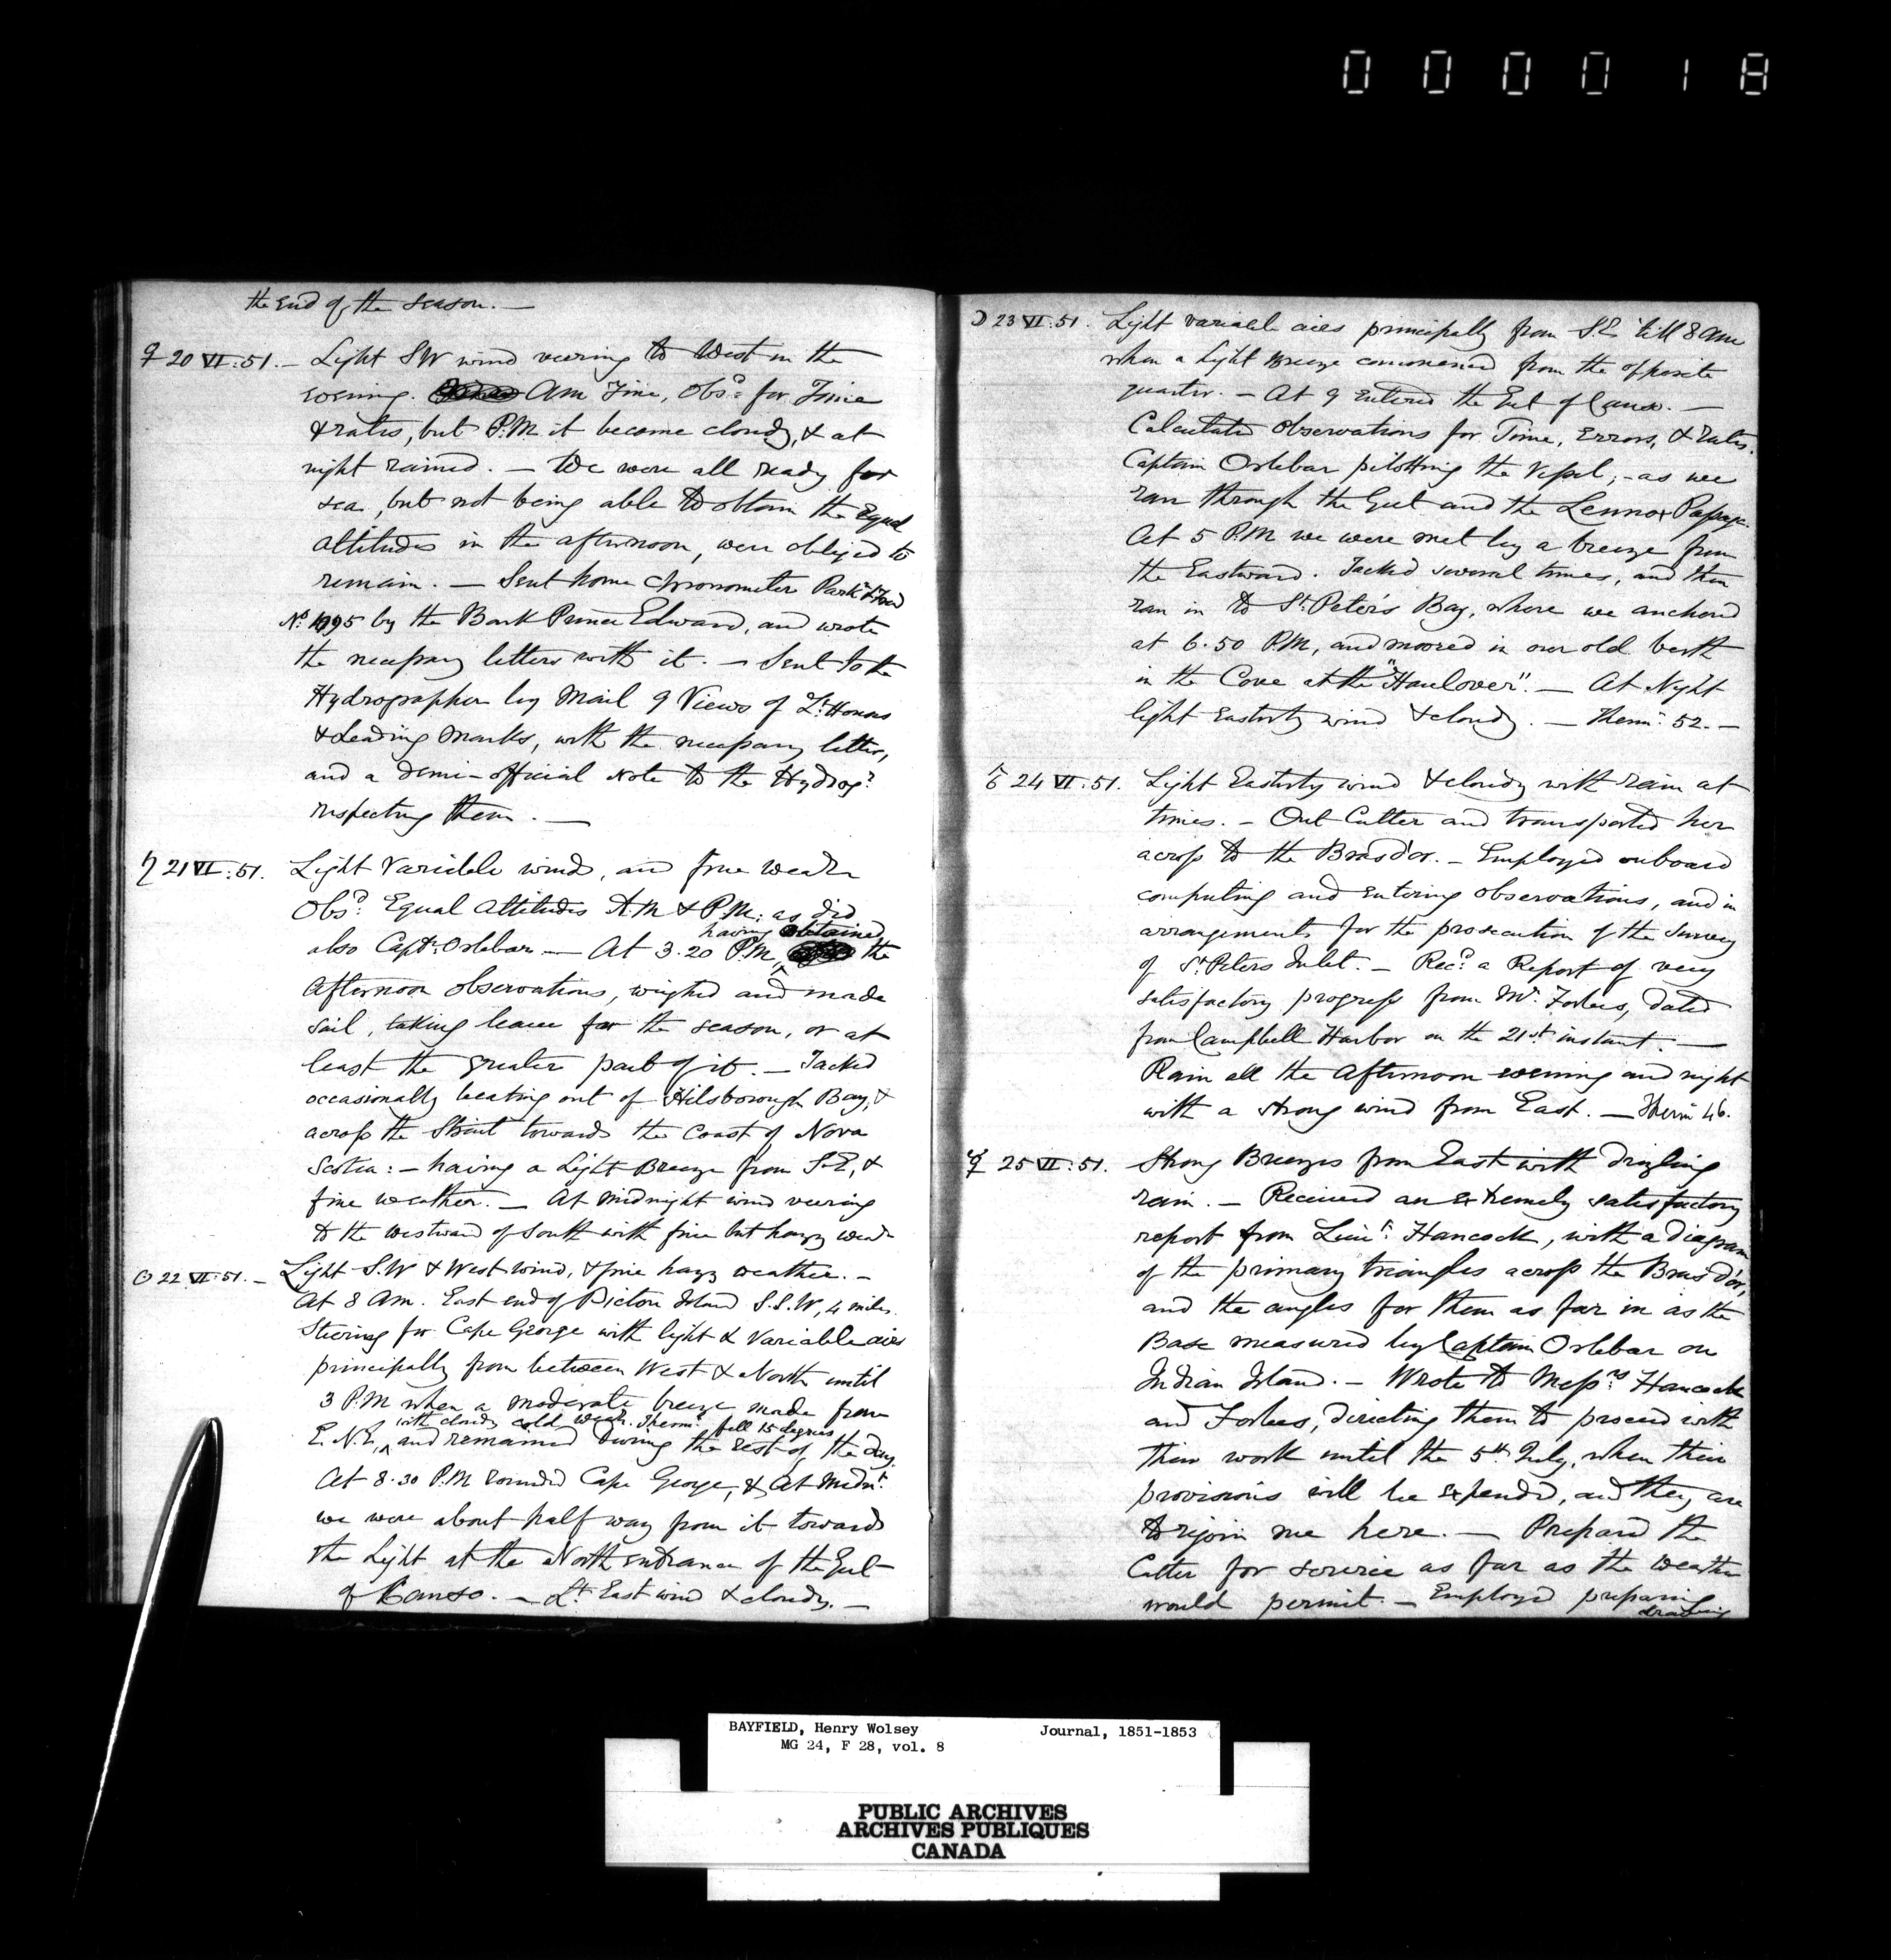 000018
the end of the season. —
♀ 20 VI:51. — Light SW wind veering to West in the
evening. Am Fine, Obsd: for Time
& rates, but P.M it became cloudy, & at
night rained. — We were all ready for
sea, but not being able to obtain the Equal
altitudes in the afternoon, were obliged to
remain. — Sent home chronometer Park
No. 1095 by the Bark Prince Edward, and wrote
the necessary letters with it. — Sent to the
Hydrographer by Mail 9 Views of Lt. Houses
& Leading Marks, with the necessary letter,
and a demi-official note to the Hydrogr
respecting them. —
♄ 21 VI:51. Light Variable winds, and fine weathr
Obsd: Equal Altitudes A.M & P.M: as did
having obtained
also Captn: Orlebar. — At 3.20 P.M, ^ the
Afternoon observations, weighed and made
sail, taking leave for the season, or at
least the greater part of it. — Tacked
occasionally beating out of Hilsborough Bay, &
across the Strait towards the Coast of Nova
Scotia: — having a Light Breeze from S.E, &
fine weather. — At midnight wind veering
to the westward of South with fine but hazy weathr
☉ 22 VI:51. — Light S.W & West wind, & fine hazy weather. —
At 8 Am. East end of Pictou Island S.S.W, 4 miles.
Steering for Cape George with light & Variable airs
principally from between West & North until
3 P.M when a moderate breeze made from
with cloudy cold weathr. Thermr. fell 15 degrees
E.N.E, ^ and remained during the rest of the day.
At 8.30 P.M rounded Cape George, & At Midnt.
we were about half way from it towards
the Light at the North entrance of the Gut
of Canso. — Lt. East wind & cloudy. —
☽ 23 VI:51. Light variable airs principally from S.E. 'till 8 am
when a Light Breeze commenced from the opposite
quarter. — At 9 Entered the Gut of Canso. —
Calculated Observations for Time, Errors, & Rates.
Captain Orlebar pilotting the Vessel, - as we
ran through the Gut and the Lennox Passage.
At 5 P.M we were met by a breeze from
the Eastward. Tacked several times, and then
ran in to St. Peter's Bay, where we anchored
at 6.50 P.M, and moored in our old berth
in the Cove at the "Haulover". — At Night
light Easterly wind & cloudy. — Thermr. 52. —
♂ 24 VI:51. Light Easterly wind & cloudy with rain at
times. — Out Cutter and transported her
across to the Bras d'or. — Employed onboard
computing and entering observations, and in
arrangements for the prosecution of the Survey
of St. Peters Inlet. — Recd. a Report of very
satisfactory progress from Mr. Forbes, dated
from Campbell Harbor on the 21st instant. —
Rain all the Afternoon evening and night
with a strong wind from East. — Therm 46.
☿ 25 VI:51. Strong Breezes from East with drizling
rain. — Received an extremely satisfactory
report from Lieut: Hancock, with a diagram
of the primary triangles across the Bras d'or,
and the angles for them as far in as the
Base measured by Captain Orlebar on
Indian Island. — Wrote to Messrs Hancock
and Forbes, directing them to proceed with
their work until the 5th July, when their
provisions will be expended, and they are
to rejoin me here. — Prepared the
Cutter for service as far as the weather
would permit. — Employed preparing
drawing
BAYFIELD, Henry Wolsey Journal, 1851-1853
MG 24, F 28, vol. 8
PUBLIC ARCHIVES
ARCHIVES PUBLIQUES
CANADA